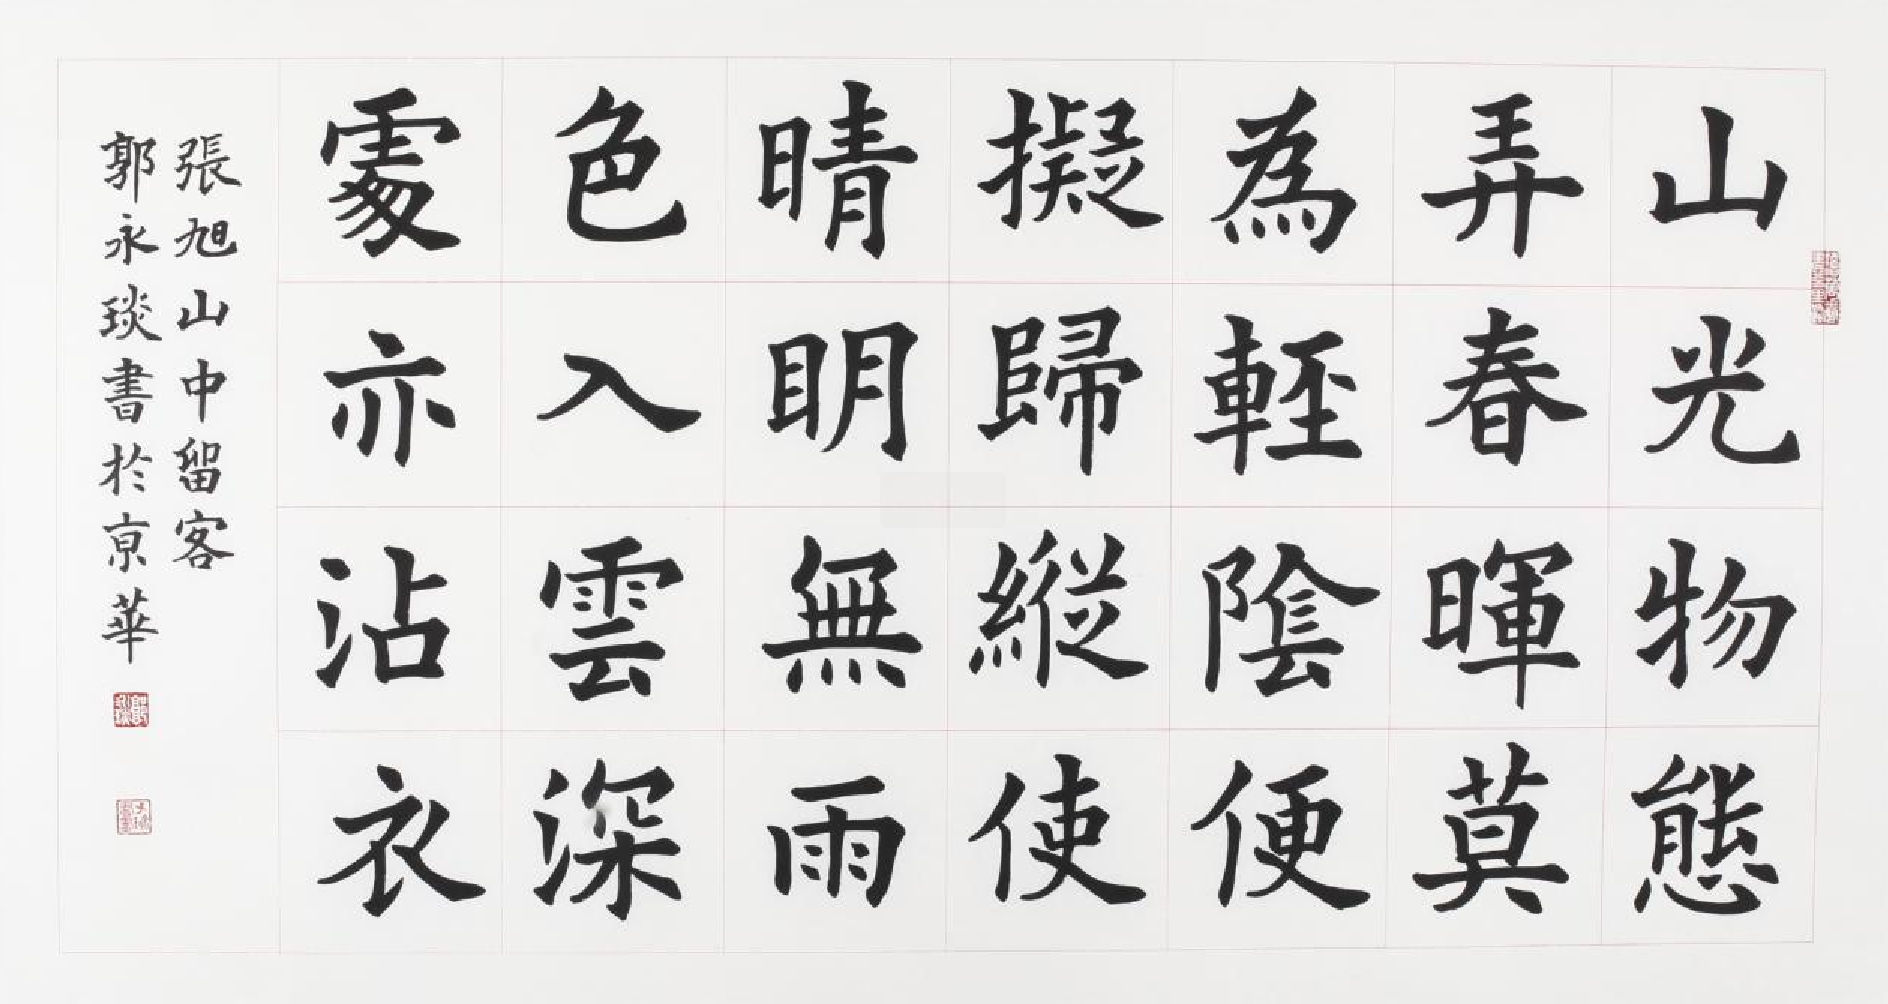 山光物態
弄春暉莫
為輕陰便
擬歸縱使
晴明無雨
色入雲深
處亦沾衣
張旭山中留客
郭永琰書於京華